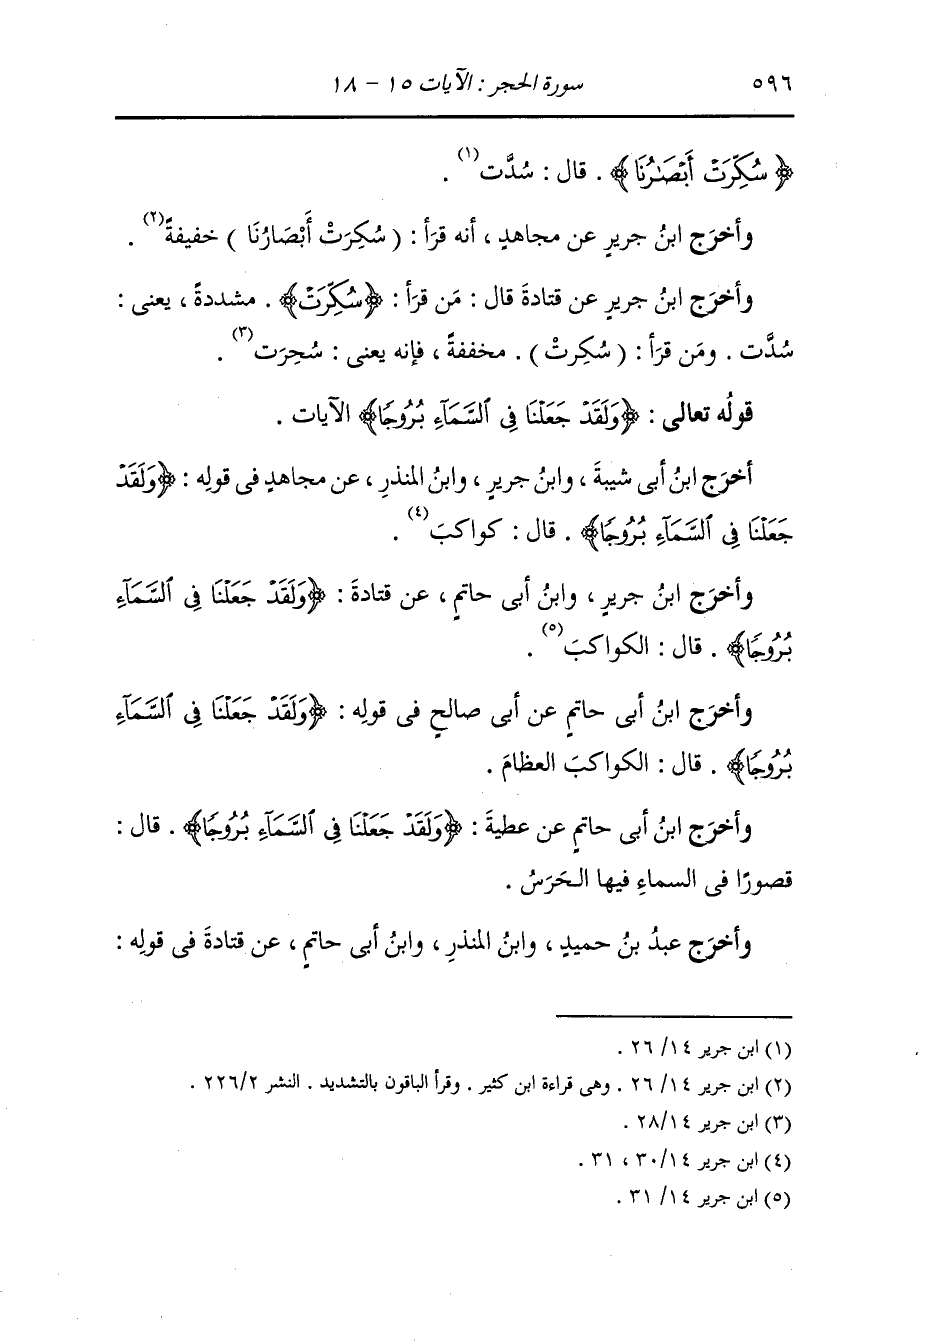 ٥٩٦ سورة الحجر : الآيات ١٥ - ١٨
﴿ سُكِّرَتْ أَبْصَـٰرُنَا ﴾ . قال : سُدَّت(١) .
وأخرَج ابنُ جريرٍ عن مجاهدٍ ، أنه قرَأ : ( سُكِرَتْ أَبْصَارُنَا ) خفيفةً(٢) .
وأخرَج ابنُ جريرٍ عن قتادةَ قال : مَن قرَأ : ﴿سُكِّرَتْ﴾ . مشددةً ، يعنى :
سُدَّت . ومَن قرَأ : ( سُكِرتْ ) . مخففةً ، فإنه يعنى : سُحِرَت(٣) .
قولُه تعالى : ﴿وَلَقَدْ جَعَلْنَا فِى ٱلسَّمَآءِ بُرُوجًا﴾ الآيات .
أخرَج ابنُ أبى شيبةَ ، وابنُ جريرٍ ، وابنُ المنذرِ ، عن مجاهدٍ فى قولِه : ﴿وَلَقَدْ
جَعَلْنَا فِى ٱلسَّمَآءِ بُرُوجًا﴾ . قال : كواكبَ(٤) .
وأخرَج ابنُ جريرٍ ، وابنُ أبى حاتمٍ ، عن قتادةَ : ﴿وَلَقَدْ جَعَلْنَا فِى ٱلسَّمَآءِ
بُرُوجًا﴾ . قال : الكواكبَ(٥) .
وأخرَج ابنُ أبى حاتمٍ عن أبى صالحٍ فى قولِه : ﴿وَلَقَدْ جَعَلْنَا فِى ٱلسَّمَآءِ
بُرُوجًا﴾ . قال : الكواكبَ العظامَ .
وأخرَج ابنُ أبى حاتمٍ عن عطيةَ : ﴿وَلَقَدْ جَعَلْنَا فِى ٱلسَّمَآءِ بُرُوجًا﴾ . قال :
قصورًا فى السماءِ فيها الحَرَسُ .
وأخرَج عبدُ بنُ حميدٍ ، وابنُ المنذرِ ، وابنُ أبى حاتمٍ ، عن قتادةَ فى قولِه :
(١) ابن جرير ١٤/ ٢٦ .
(٢) ابن جرير ١٤/ ٢٦ . وهى قراءة ابن كثير . وقرأ الباقون بالتشديد . النشر ٢٢٦/٢ .
(٣) ابن جرير ٢٨/١٤ .
(٤) ابن جرير ٣٠/١٤ ، ٣١ .
(٥) ابن جرير ١٤/ ٣١ .